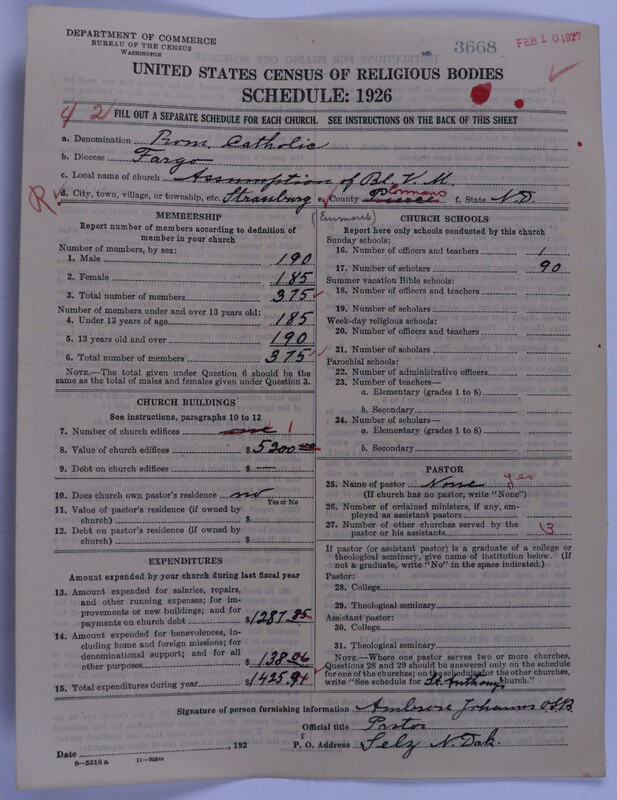 DEPARTMENT OF COMMERCE
BUREAU OF THE CENSUS
WASHINGTON
3668
FEB 10 1927
UNITED STATES CENSUS OF RELIGIOUS BODIES
SCHEDULE: 1926
42
FILL OUT A SEPARATE SCHEDULE FOR EACH CHURCH. SEE INSTRUCTIONS ON THE BACK OF THIS SHEET
a. Denomination Rom. Catholic
b. Diocese Fargo
c. Local name of church Assumption of Bl. V. M.
R d. City, town, village, or township, etc. Strassburg e. County Pierce Emmons f. State N.D.
(Emmons)
MEMBERSHIP
Report number of members according to definition of member in your church
Number of members, by sex:
1. Male 190
2. Female 185
3. Total number of members 375
Number of members under and over 13 years old:
4. Under 13 years of age 185
5. 13 years old and over 190
6. Total number of members 375
NOTE.—The total given under Question 6 should be the same as the total of males and females given under Question 3.
CHURCH BUILDINGS
See instructions, paragraphs 10 to 12
7. Number of church edifices one 1
8. Value of church edifices $5200.00
9. Debt on church edifices $ —
10. Does church own pastor's residence no
Yes or No
11. Value of pastor's residence (if owned by church) $
12. Debt on pastor's residence (if owned by church) $
EXPENDITURES
Amount expended by your church during last fiscal year
13. Amount expended for salaries, repairs, and other running expenses; for improvements or new buildings; and for payments on church debt $1287.85
14. Amount expended for benevolences, including home and foreign missions; for denominational support; and for all other purposes $138.06
15. Total expenditures during year $1425.91
CHURCH SCHOOLS
Report here only schools conducted by this church
Sunday schools:
16. Number of officers and teachers 1
17. Number of scholars 90
Summer vacation Bible schools:
18. Number of officers and teachers
19. Number of scholars
Week-day religious schools:
20. Number of officers and teachers
21. Number of scholars
Parochial schools:
22. Number of administrative officers
23. Number of teachers—
a. Elementary (grades 1 to 8)
b. Secondary
24. Number of scholars—
a. Elementary (grades 1 to 8)
b. Secondary
PASTOR
25. Name of pastor None yes
(If church has no pastor, write "None")
26. Number of ordained ministers, if any, employed as assistant pastors
27. Number of other churches served by the pastor or his assistants 3
If pastor (or assistant pastor) is a graduate of a college or theological seminary, give name of institution below. (If not a graduate, write "No" in the space indicated.)
Pastor:
28. College
29. Theological seminary
Assistant pastor:
30. College
31. Theological seminary
NOTE.—Where one pastor serves two or more churches, Questions 28 and 29 should be answered only on the schedule for one of the churches; on the schedules for the other churches, write "See schedule for St. Anthony church."
Signature of person furnishing information Ambrose Johanns O.S.B
Official title Pastor
Date , 192 P. O. Address Selz N. Dak.
8—5518a 11—9054a